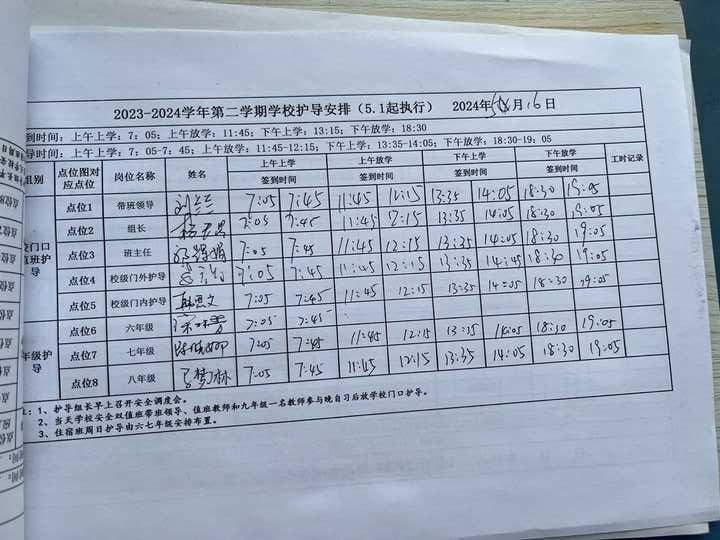 2023-2024学年第二学期学校护导安排（5.1起执行） 2024年5月16日
到时间：上午上学：7：05；上午放学：11:45；下午上学：13:15；下午放学：18:30
导时间：上午上学：7：05-7：45；上午放学：11:45-12:15；下午上学：13:35-14:05；下午放学：18:30-19：05
组别 点位图对应点位 岗位名称 姓名 上午上学 上午放学 下午上学 下午放学 工时记录
签到时间 签到时间 签到时间 签到时间
点位1 带班领导 7:05 7:45 11:45 12:15 13:35 14:05 18:30 19:05
点位2 组长 7:05 7:45 11:45 12:15 13:35 14:05 18:30 19:05
校门口值班护导 点位3 班主任 7:05 7:45 11:45 12:15 13:35 14:05 18:30 19:05
点位4 校级门外护导 7:05 7:45 11:45 12:15 13:35 14:45 18:30 19:05
点位5 校级门内护导 韩思文 7:05 7:45 11:45 12:15 13:35 14:05 18:30 19:05
点位6 六年级 7:05 7:45
年级护导 点位7 七年级 7:05 7:45 11:45 12:15 13:35 14:05 18:30 19:05
点位8 八年级 马梦林 7:05 7:45 11:45 12:15 13:35 14:05 18:30 19:05
注：1、护导组长早上召开安全调度会。
2、当天学校安全双值班带班领导、值班教师和九年级一名教师参与晚自习后放学校门口护导。
3、住宿班周日护导由六七年级安排布置。